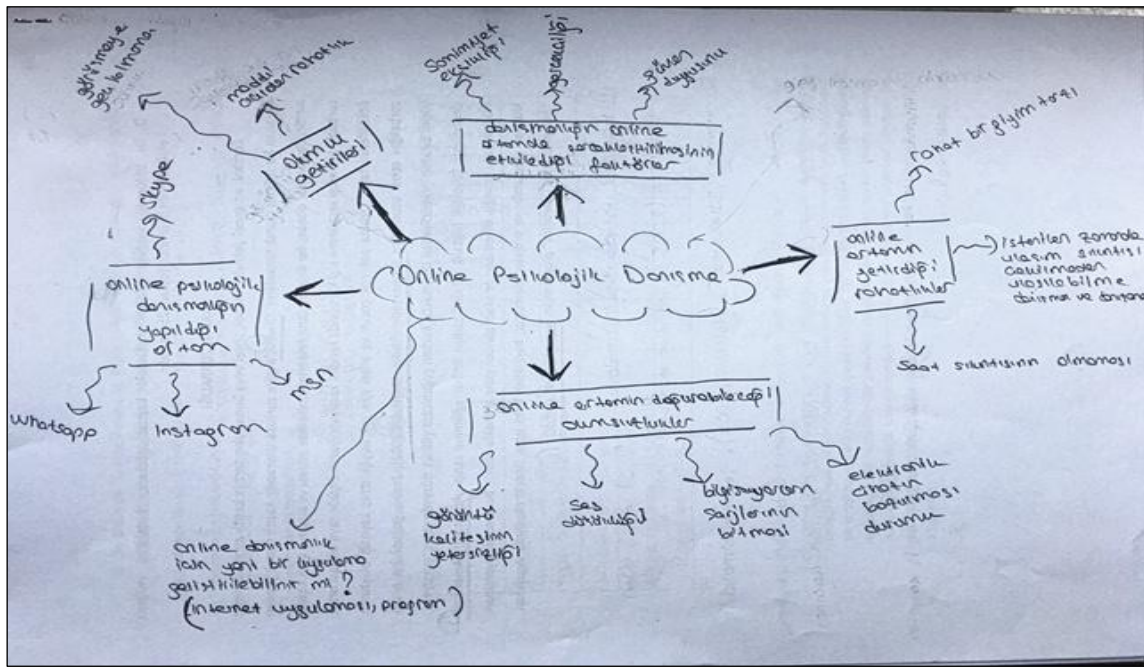 görüşmeye
geç kalmama
maddi
açıdan rahatlık
olumlu
getirileri
Samimiyet
eksikliği
güven
duygusunu
danışmanlığın online
ortamda gerçekleştirilmesinin
etkilediği faktörler
rahat bir giyim tarzı
Skype
online
ortamın
getirdiği
rahatlıklar
istenilen zamanda
ulaşım sıkıntısı
çekilmeden
ulaşılabilme
danışma ve danışana
saat sıkıntısının olmaması
Online Psikolojik Danışma
online psikolojik
danışmanlığın
yapıldığı
ortam
Whatsapp
Instagram
msn
online ortamın doğurabileceği
olumsuzluklar
görüntü
kalitesinin
yetersizliği
ses
bilgisayarın
şarjlarının
bitmesi
elektronik
cihazın
bozulması
durumu
online danışmanlık
için yeni bir uygulama
geliştirilebilinir mi?
(internet uygulaması, program)